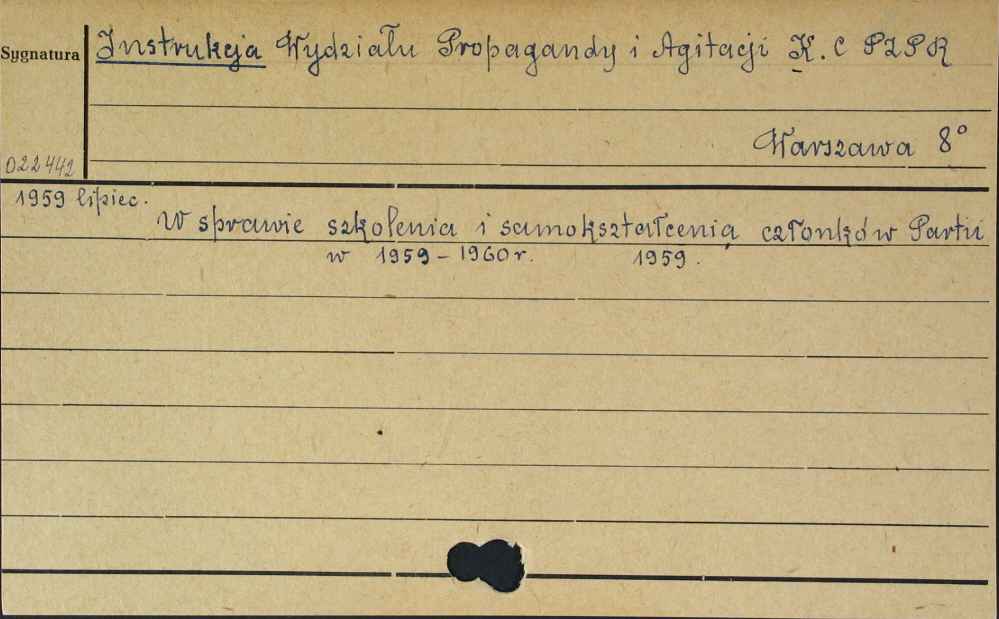 Sygnatura
Instrukcja Wydziału Propagandy i Agitacji K.C PZPR
Warszawa 8°
022442
1959 lipiec.
W sprawie szkolenia i samokształcenia członków Partii
w 1959-1960r. 1959.